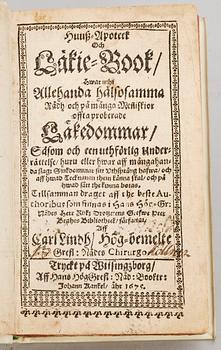 Huuß-Apoteek
Och
Läkie-Book/
Hwar uthi
Allehanda hälsosamma
Rådh och på många Menniskior
offta proberade
Läkedommar/
Såsom och een uthförlig Under-
rättelse/ huru eller hwar aff mångahan-
da slags Siukdommar sin Uthsprång hafwa/ och
aff hwad Tecknum them känna skal/ och på
hwad sätt the kunna botas.
Tillsamman dragit aff the beste Au-
thoribus som finnas i Hans Hög-Gr:
Nådes Herr Rikz Drotzetens Grefwe Peer
Brahes Bibliotheek/ författat/
Aff
Carl Lindh/ Hög-bemelte
Grefl: Nådes Chirurgo
Tryckt på Wijsingzborg/
Aff Hans HögGrefl: Nåd: Booktr:
Johann Kankel/ åhr 1675.